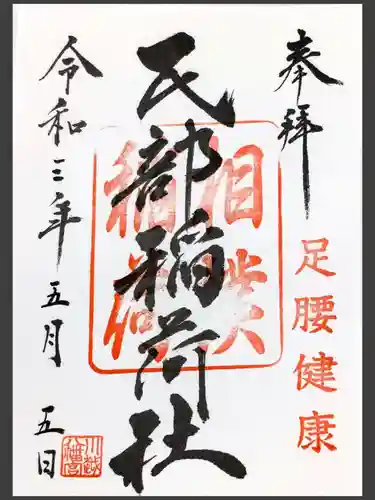 奉拝
足腰健康
相撲
稲荷
民部稲荷社
令和三年 五月 五日
川越
八幡宮